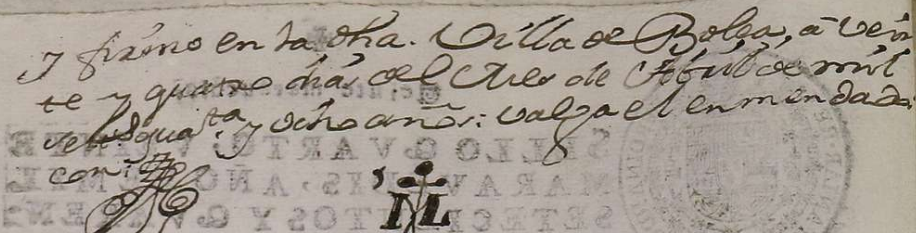 y firmo en la dha. Villa de Bolea, à vein
te y quatro dias del Mes de Abril de mil
y ocho años: valga el enmendado
con:
IL